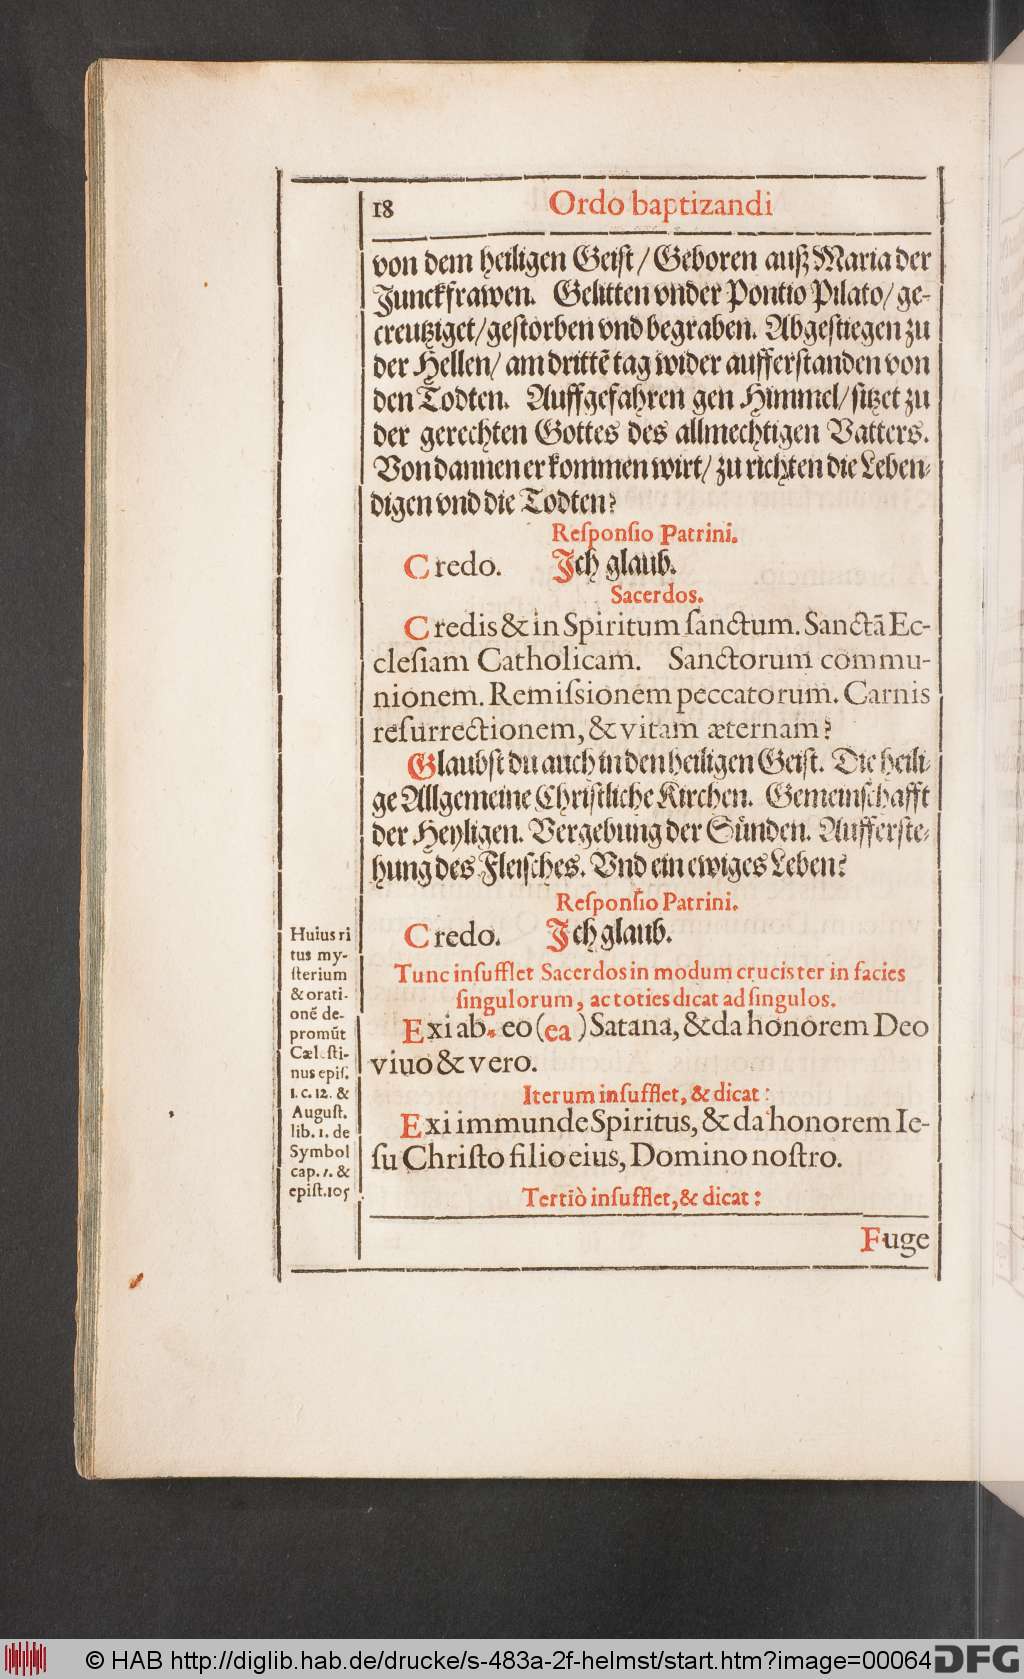 18 Ordo baptizandi
von dem heiligen Geist / Geboren auß Maria der
Junckfrawen. Gelitten vnder Pontio Pilato / ge-
creutziget / gestorben vnd begraben. Abgestiegen zu
der Hellen / am drittẽ tag wider aufferstanden von
den Todten. Auffgefahren gen Himmel / sitzet zu
der gerechten Gottes des allmechtigen Vatters.
Von dannen er kommen wirt / zu richten die Leben-
digen vnd die Todten?
Reſponſio Patrini.
Credo. Ich glaub.
Sacerdos.
Credis & in Spiritum ſanctum. Sanctã Ec-
cleſiam Catholicam. Sanctorum commu-
nionem. Remiſſionem peccatorum. Carnis
reſurrectionem, & vitam æternam?
Glaubst du auch in den heiligen Geist. Die heili-
ge Allgemeine Christliche Kirchen. Gemeinschafft
der Heyligen. Vergebung der Sünden. Aufferste-
hung des Fleisches. Vnd ein ewiges Leben?
Reſponſio Patrini.
Credo. Ich glaub.
Tunc inſufflet Sacerdos in modum crucis ter in facies
ſingulorum, ac toties dicat ad ſingulos.
Exi ab eo (ea) Satana, & da honorem Deo
viuo & vero.
Iterum inſufflet, & dicat:
Exi immunde Spiritus, & da honorem Ie-
ſu Chriſto filio eius, Domino noſtro.
Tertiò inſufflet, & dicat:
Fuge
Huius ri
tus my-
ſterium
& orati-
onẽ de-
promũt
Cæleſti-
nus epiſ.
1. c. 12. &
Auguſt.
lib. 1. de
Symbol
cap. 1. &
epiſt. 105
© HAB http://diglib.hab.de/drucke/s-483a-2f-helmst/start.htm?image=00064
DFG